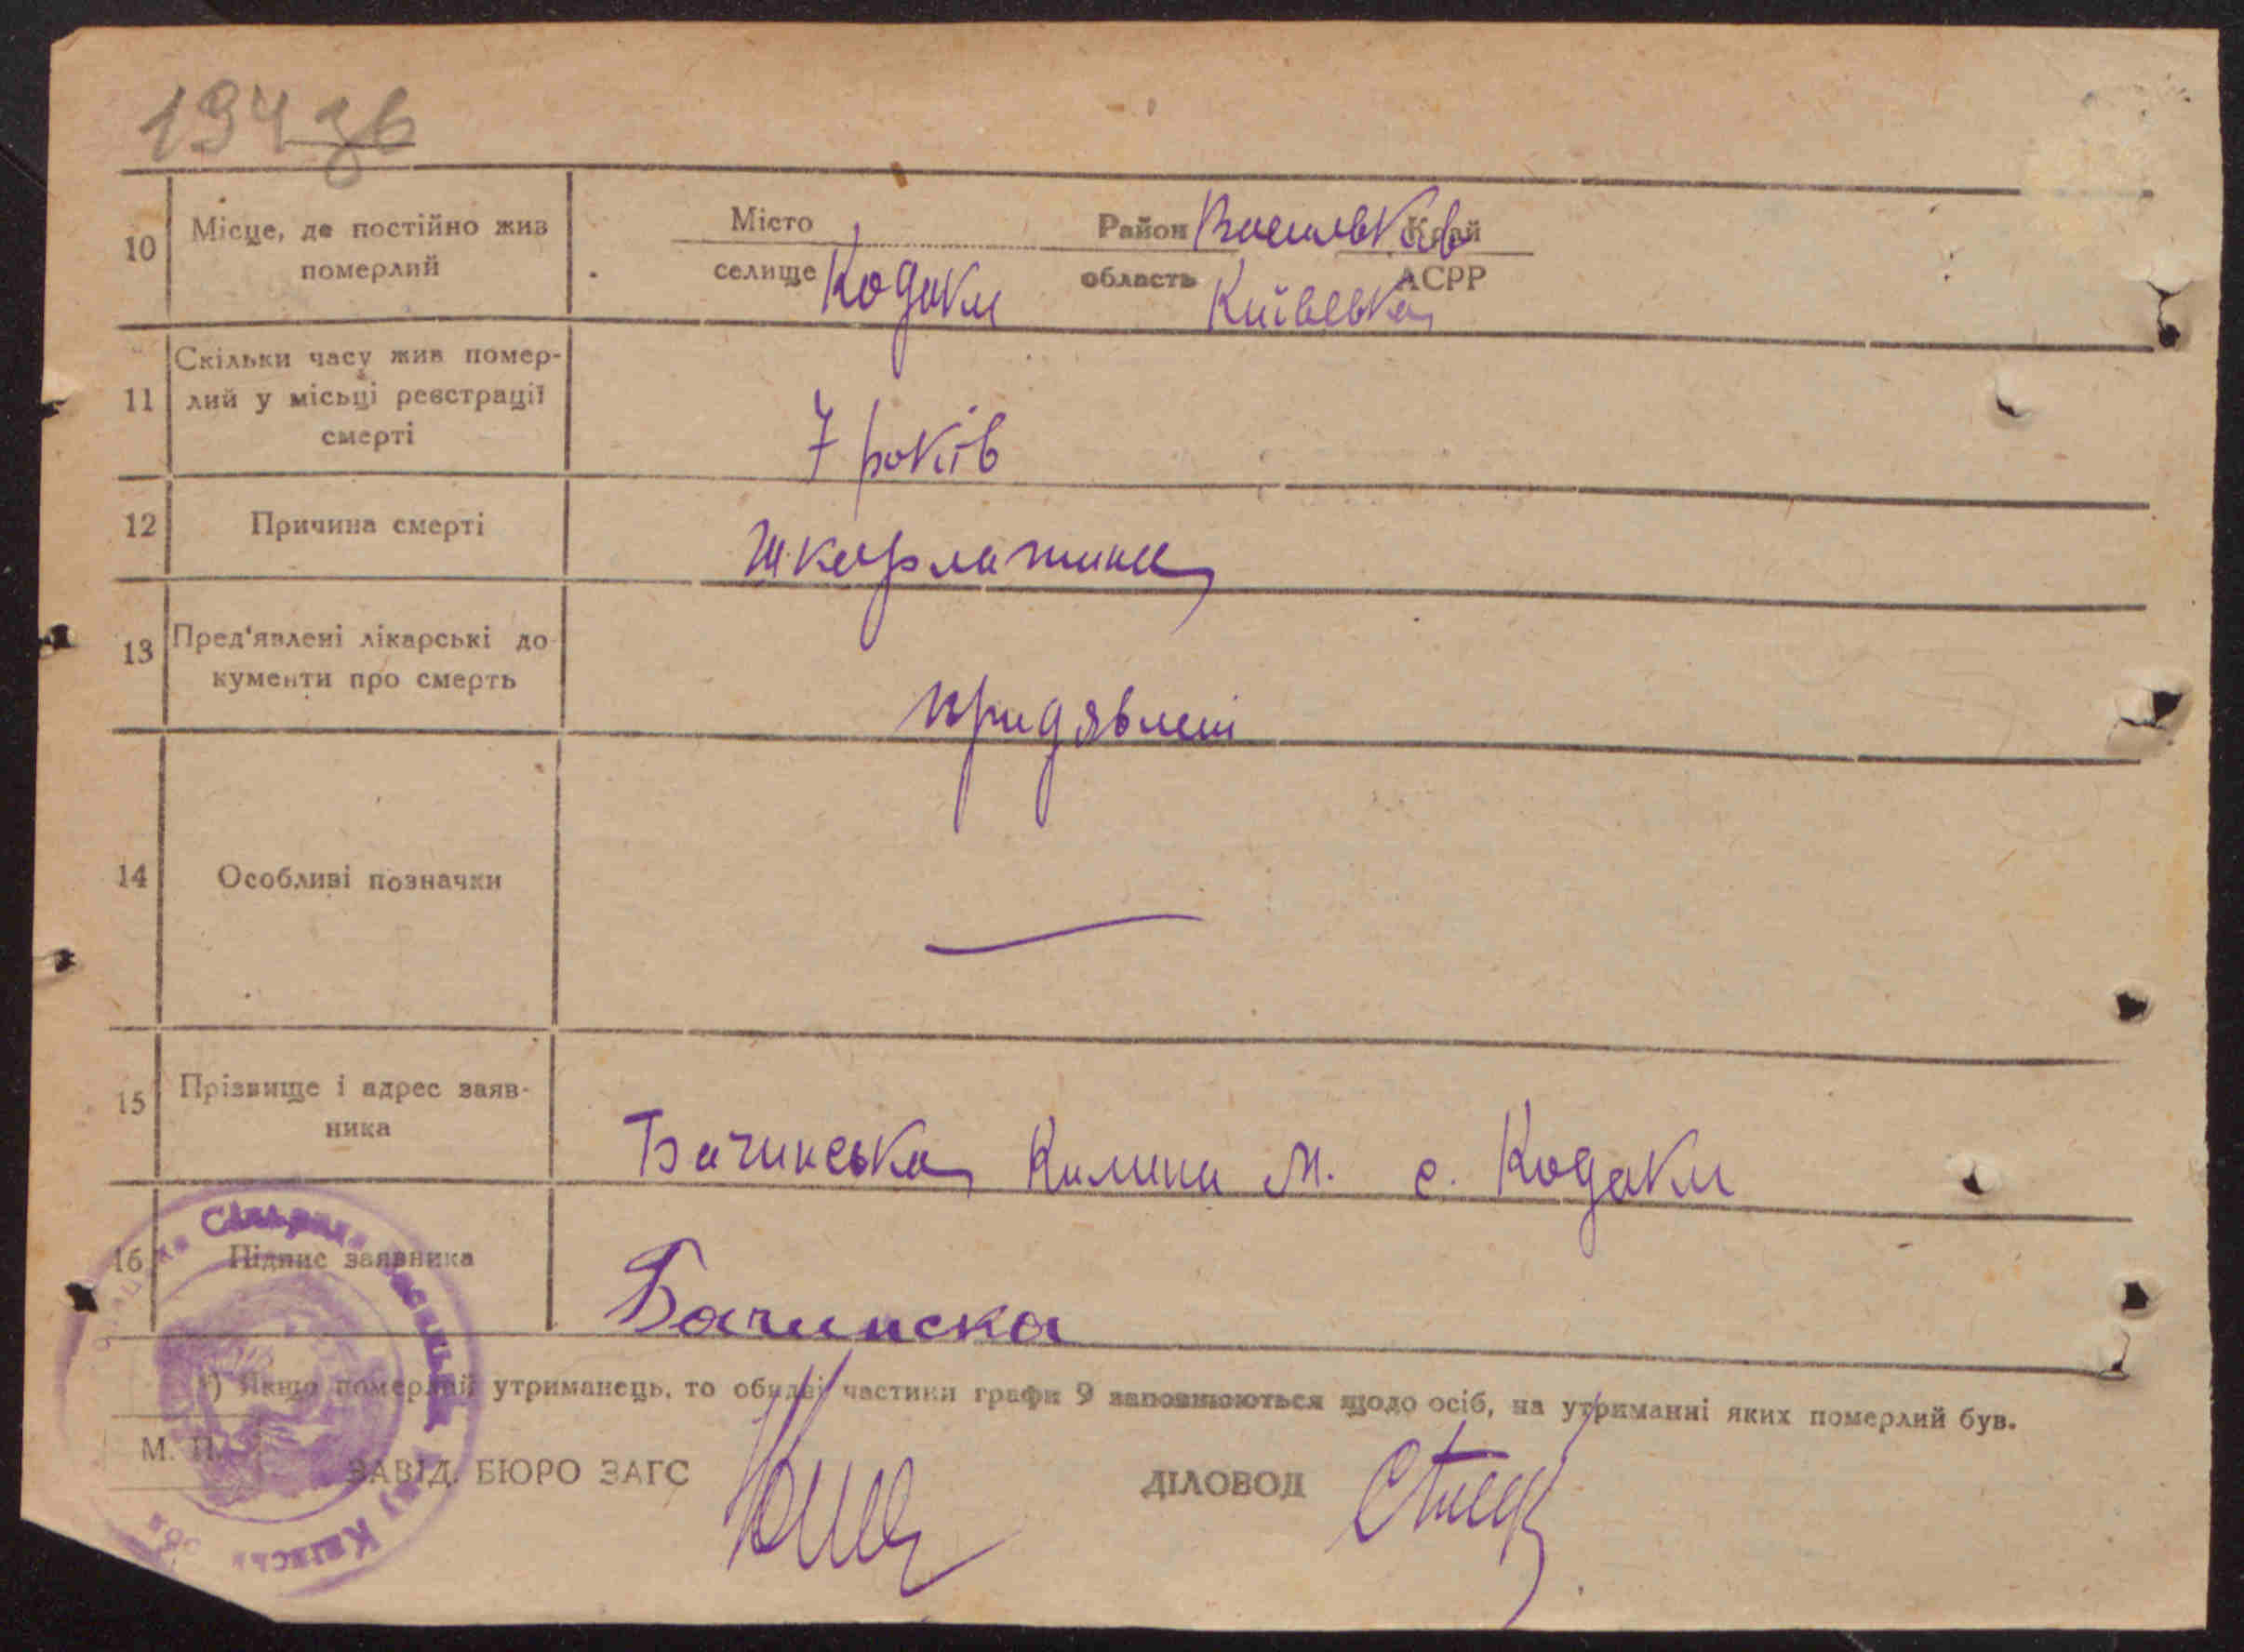 194 зв
10 Місце, де постійно жив померлий
Місто
селище Кодаки
Район Васильков Край
область Київська АСРР
11 Скільки часу жив помер-
лий у місьці реєстрації
смерті
7 років
12 Причина смерті
Шкарлатина
13 Пред'явлені лікарські до
кументи про смерть
придявлені
14 Особливі позначки
—
15 Прізвище і адрес заяв-
ника
Бачинська Килина М. с. Кодаки
16 Підпис заявника
Бачинска
*) Якщо померлий утриманець, то обидві частини графи 9 заповнюються щодо осіб, на утриманні яких померлий був.
М. П.
ЗАВІД. БЮРО ЗАГС
ДІЛОВОД